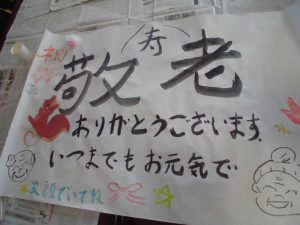 祝
寿
敬老
ありがとうございます。
いつまでもお元気で
笑顔でいてね